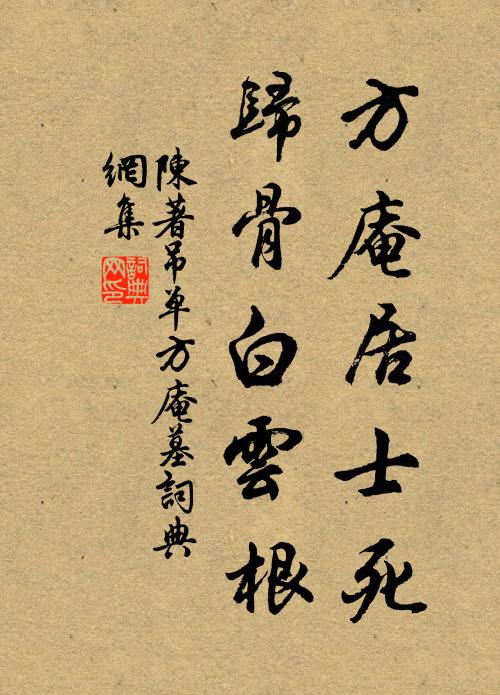 方庵居士死
歸骨白雲根
陳著吊单方庵墓詞典
網集
詞典
网印